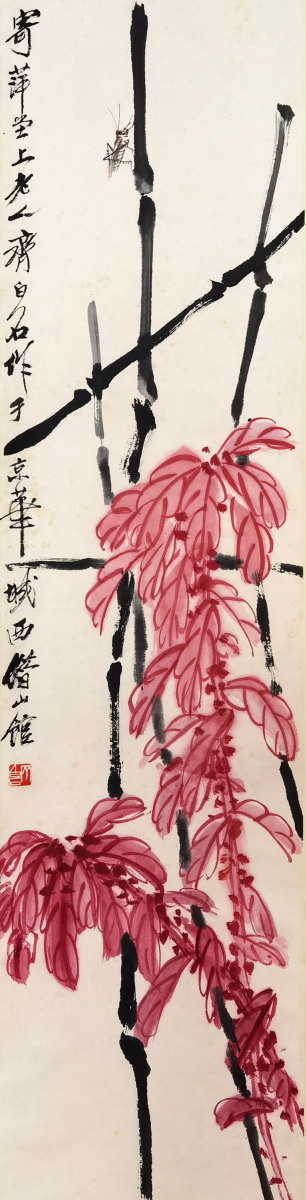 寄萍堂上老人齊白石作于京華城西借山館